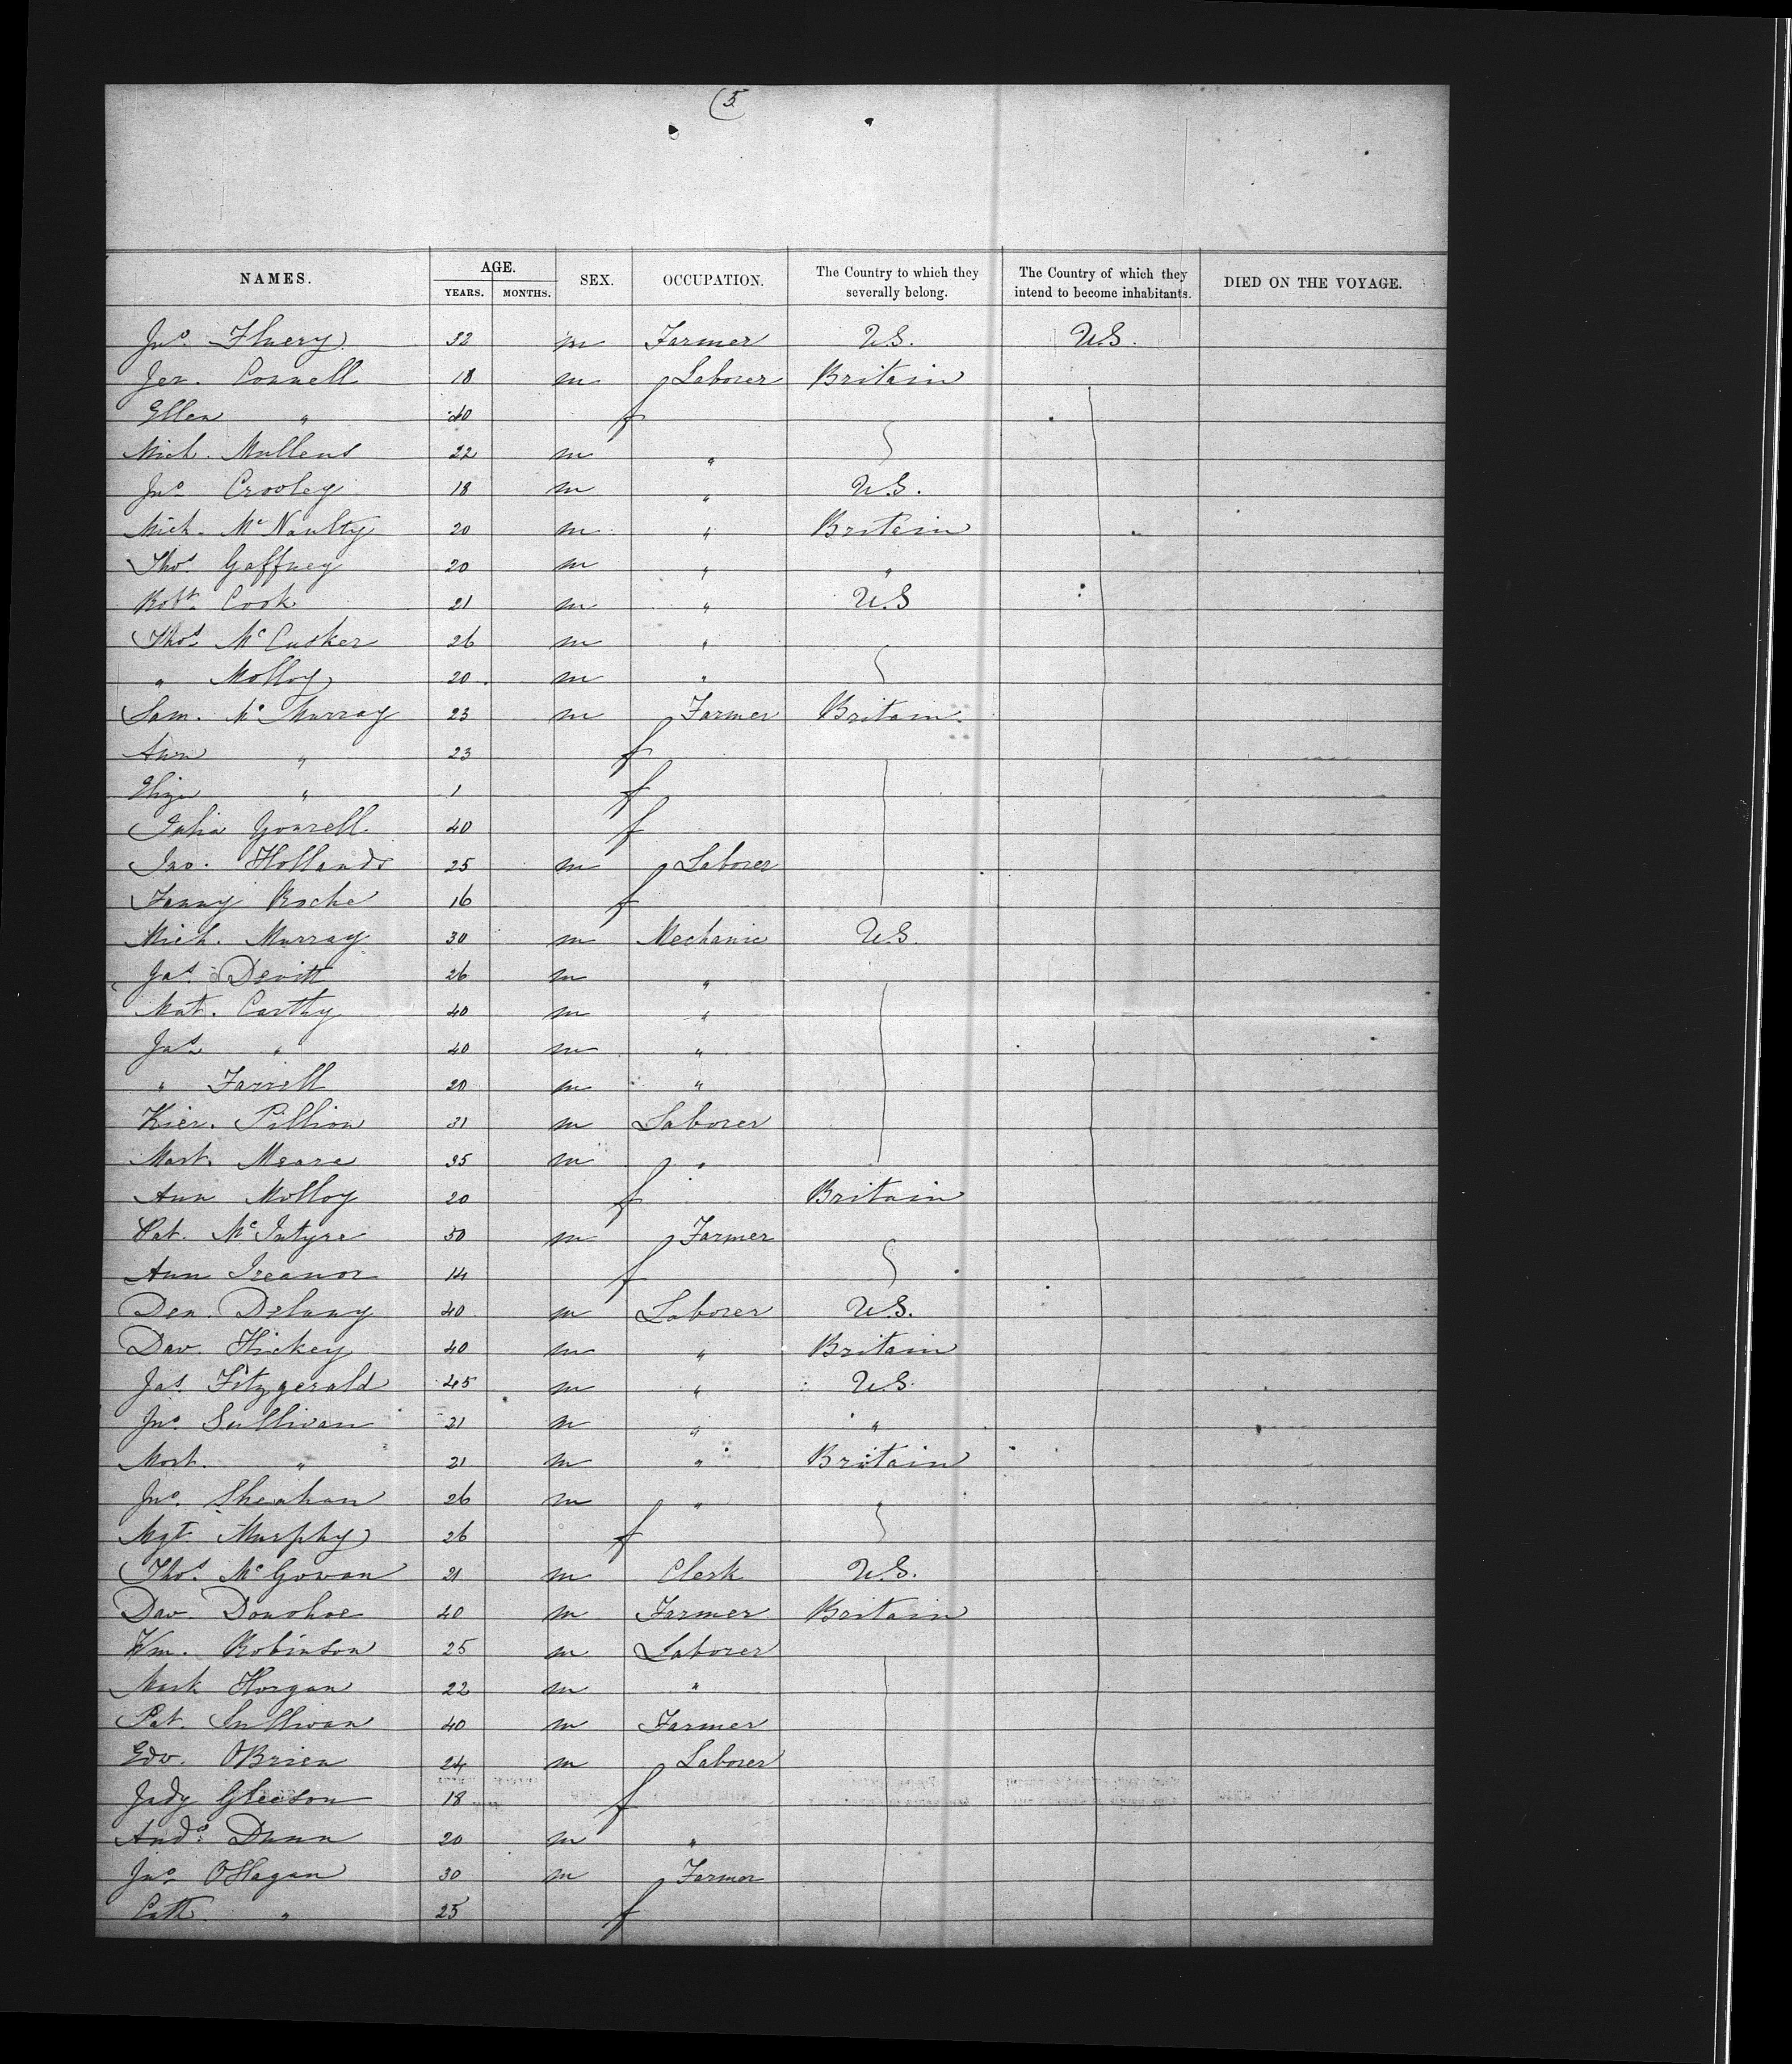 (5
NAMES. AGE. YEARS. MONTHS. SEX. OCCUPATION. The Country to which they severally belong. The Country of which they intend to become inhabitants. DIED ON THE VOYAGE.
Jno. Fluery 32 m Farmer U.S. U.S.
Jer. Connell 18 m Laborer Britain
Ellen " 40 f
Mich. Mullens 22 m "
Jno Crooley 18 m " U.S.
Mich. McNaulty 20 m " Britain
Thos. Gaffney 20 m " "
Robt. Cook 21 m " U.S
Thos. McCusker 26 m "
" Molloy 20 m "
Sam. McMurray 23 m Farmer Britain
Ann " 23 f
Eliza " 1 f
Julia Gonrell 40 f
Jno. Hollands 25 m Laborer
Fanny Roche 16 f
Mich. Murray 30 m Mechanic U.S.
Jas. Devitt 26 m "
Mat. Carthy 40 m "
Jas " 40 m "
" Farrell 20 m "
Kier. Pillion 31 m Laborer
Mart. Meare 35 m "
Ann Molloy 20 f Britain
Pat. McIntyre 50 m Farmer
Ann Treanor 14 f
Den. Delany 40 m Laborer U.S.
Dav. Hickey 40 m " Britain
Jas. Fitzgerald 45 m " U.S.
Jno Sullivan 21 m " "
Mort. " 21 m " Britain
Jno. Sheahan 26 m " "
Mgt. Murphy 26 f
Thos. McGowan 21 m Clerk U.S.
Dav. Donohoe 40 m Farmer Britain
Wm. Robinson 25 m Laborer
Mark Horgan 22 m "
Pat. Sullivan 40 m Farmer
Edw. OBrien 24 m Laborer
Judy Gleeson 18 f
Andw. Dunn 20 m "
Jno OHagan 30 m Farmer
Cath. " 25 f